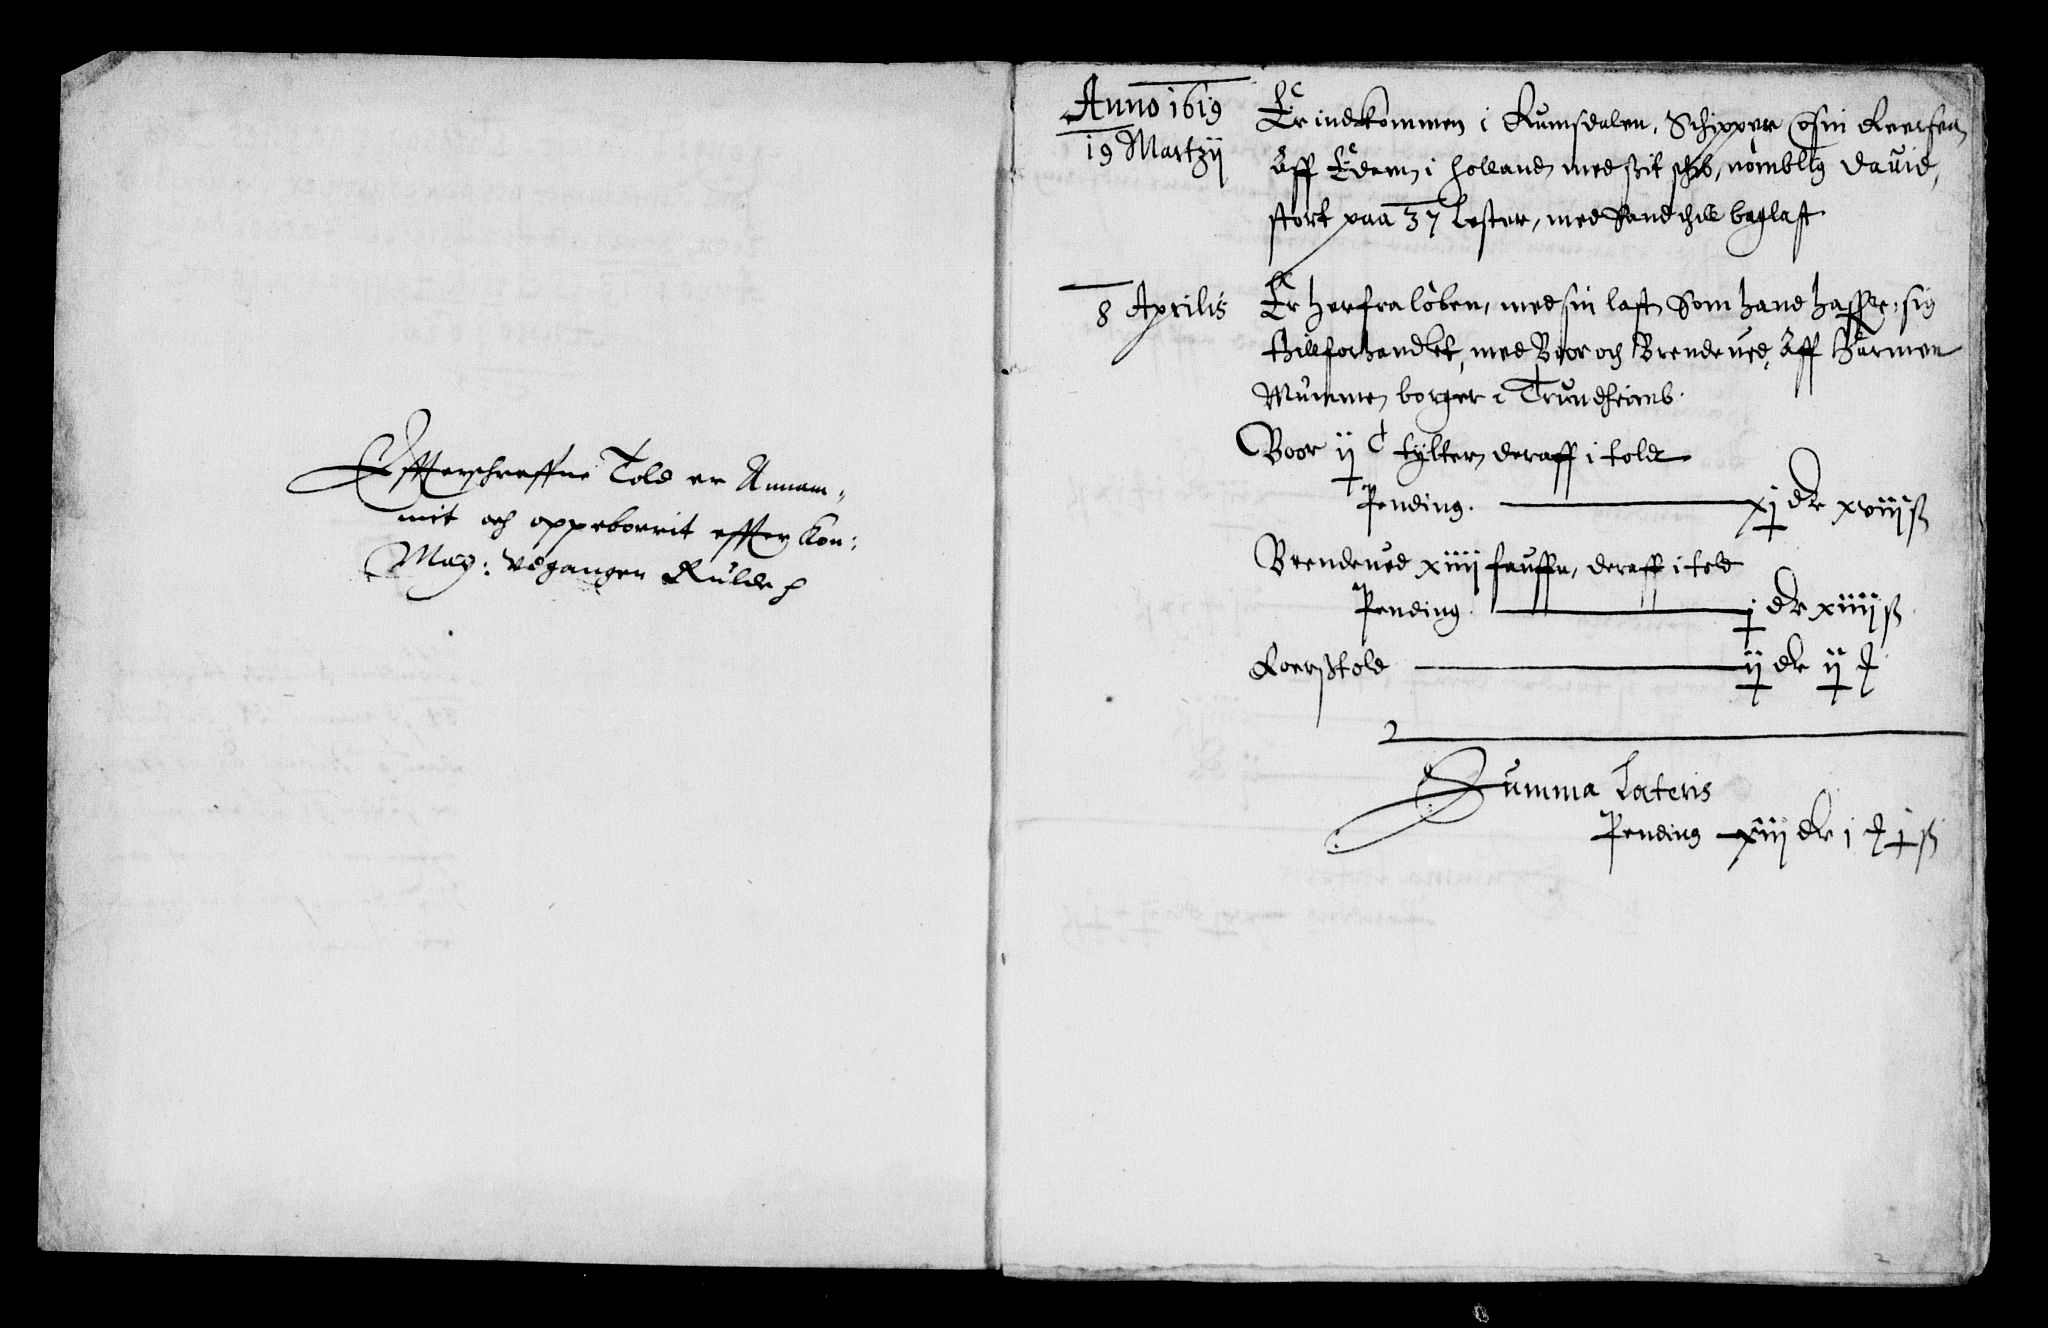 Effterschreffne Told er Annam„
mit och oppeborrit effter Kon:
May: vdgangen Rulle
Anno 1619
19 Martzij
Er indkommen i Rumsdalen, Schipper
Aff Edam i Holland med ßit schib, nömblig Dauid,
stort paa 37 Lester, med Sand till baglast
8 Aprilis
Er herfra löben, med sin last Som hand haffr: sig
tillforhandlet, med Boor och Brendeued, Aff Harmen
Mummen borger i Trundheimb.
Boor ij C tylter, deraff i told
Pending. xj dlr xviij ß
Brendeued xiiij fauffn, deraff i told
Pending. j dlr xiiij ß
Roerßtold ij dlr ij
Summa Lateris
Pending
2